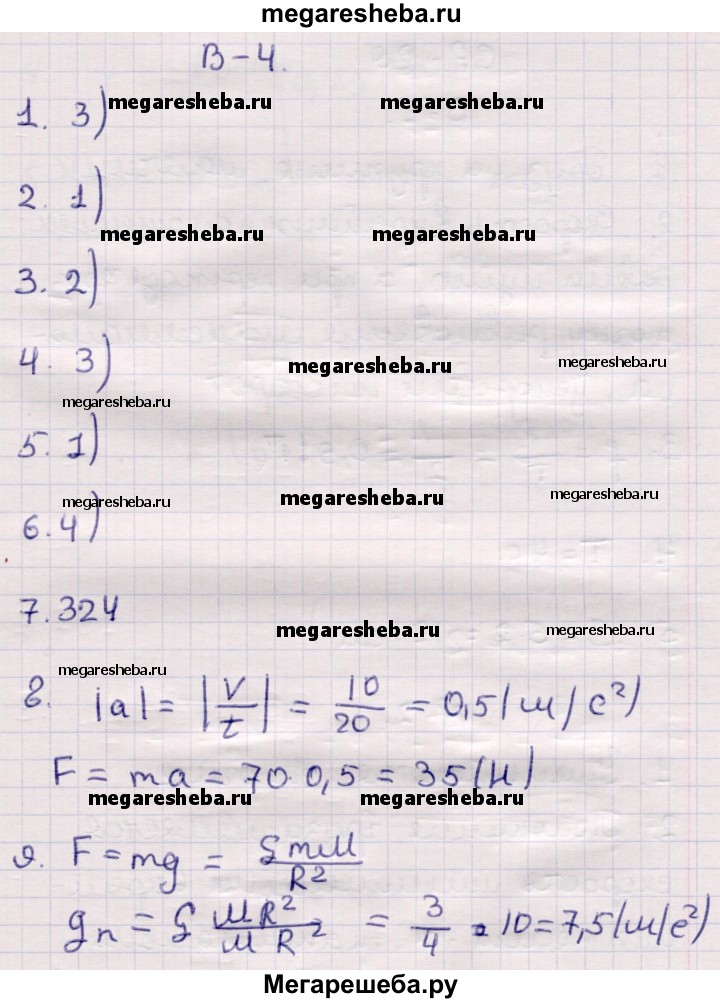 megaresheba.ru
В-4.
megaresheba.ru megaresheba.ru
1. 3)
2. 1)
megaresheba.ru megaresheba.ru
3. 2)
4. 3)
megaresheba.ru megaresheba.ru
megaresheba.ru
5. 1)
megaresheba.ru megaresheba.ru megaresheba.ru
6. 4)
7. 324
megaresheba.ru megaresheba.ru
megaresheba.ru
8. |a| = |V/t| = 10/20 = 0,5 (м/с²)
F = ma = 70·0,5 = 35 (Н)
megaresheba.ru megaresheba.ru
9. F = mg = G mM/R²
gп = G MR²/MR² = 3/4 · 10 = 7,5 (м/с²)
Мегарешеба.ру